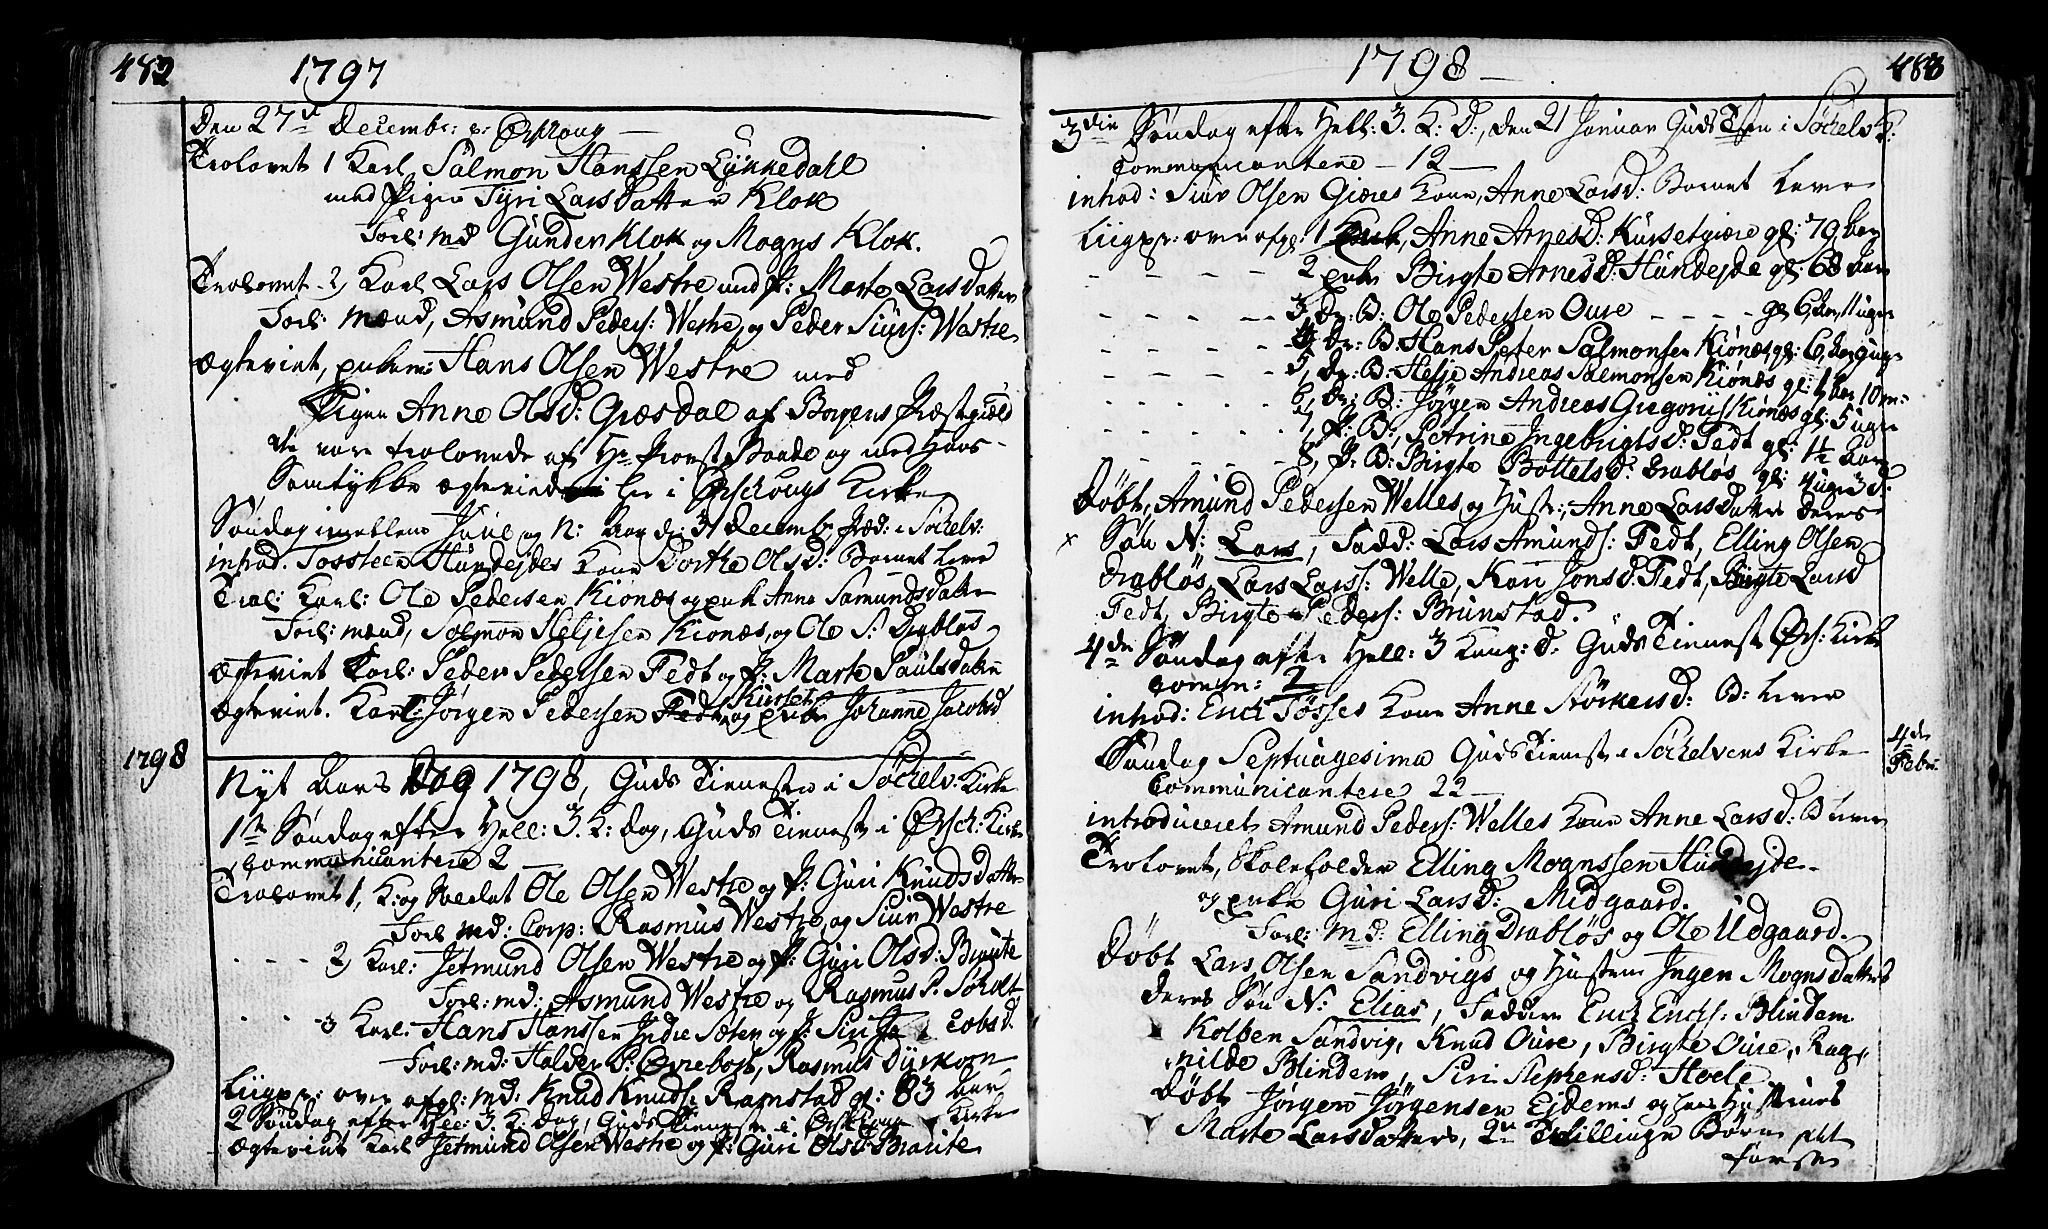 482
1797
Den 27de Decembr: i Ørschoug —
Trolovet 1 Karl Salmon Hanssen Lykkedahl
med Pigen Tyri LarsDatter Klok
Forl: md Gunder Klok og Mogns Klok.
Trolovet 2, Karl Lars Olsen Westre med P: Marte LarsDatter
Forl: Mænd, Asmund Peders: Westre, og Peder Siurs: Westre
Ægteviet, enkem: Hans Olsen Westre med
Pigen Anne Olsd: Græsdal af Borgens Præstegield
de vare trolovede af Hr Provst Baade og med Hans
Samtykke ægteviede her i Ørschougs Kirke
Søndag imellem Juul og N: Aar d: 31 Decemb, Præd: i Søchelv:
introd. Tossteen Hundejdes Kone Dorthe Olsd: Barnet lever
Trol: Karl: Ole Pedersen Kionæs og enke Anne Samundsdatter
Forl: mænd, Salmon Heljesen Kionæs, og Ole S: Drabløs
Ægteviet Karl: Peder Pedersen Fedt og P: Marte Paulsdatter
Ægteviet. Karl: Jørgen Pedersen Kurset og enke Johanne Jacobsd
1798
Nyt Aars Dag 1798, Guds Tieneste i Søchelv: Kirke
1te Søndag efter Hell: 3. K: dag, Guds Tieneste i Ørsch: Kirke
Communicantere 2
Trolovet 1, K: og Soldat Ole Olsen Westre og P: Guri KnudsDatter
Forl md: Corp: Rasmus Westre, og Siur Westre
- - - 2, Karl: Jetmund Olsen Westre og P: Guri Olsd: Braute
Forl: md: Asmund Westre og Rasmus P. Søholt
- - - 3 Karl: Hans Hanssen Indre Sæter og P: Siri Jacobsd.
Forl: md: Halder P: Ørrebost, Rasmus Dyrkorn
Liigpr: over afgl: md: Knud Knuds: Ramstad gl: 83 Aar
2 Søndag efter Hell: 3. K: dag, Guds Tieneste i Ørschoug Kirke
Ægteviet Karl Jetmund Olsen Westre og P: Guri Olsd: Braute
1798 —
483
3die Søndag efter Hell: 3. K: D:, den 21 Januar Guds Tjen i Søchelv K:
Communicantere — 12 —
introd: Siur Olsen Giæres Kone, Anne Larsd: Barnet lever
Liigpr: over afgl: 1 Enke, Anne Arnesd: Kursetgiære gl: 79 Aar
- - - - 2 enke Birgte Arnesd: Hundejde gl: 68 Aar
- - - - 3, Dr: B: Ole Pedersen Oure - - - - gl 6 Aar 11 uger
- - - - 4 Dr: B: Hans Peter Salmonsen Kionæs, gl: 6 Aar 9 uger
- - - - 5, Dr: B: Helje Andreas Salmonsen Kionæs gl: 1 Aar 10 m:
- - - - 6, Dr: B: Jørgen Andreas Gregorius Kionæs gl: 5 uger
- - - - 7, P: B:, Petrine Ingebrigtsd: Fedt gl: 1½ Aar
- - - - 8, P: B: Birgte Bottelsd: Drabløs gl: 4 uger 3 d:
Døbt, Amund Pedersen Welles og Hustr:, Anne Larsdatter deres
x Søn N: Lars, Fadd: Lars Amunds: Fedt, Elling Olsen
Drabløs, Lars Larss: Welle, Kari Jonsd: Fedt, Birgte Larsd
Fedt, Birgte Peders: Brunstad.
4de Søndag efter Hell: 3 Kong: d: Guds Tieneste Ørs: Kirke
Comm: 2
introd: Erich Tosses Kone Anne Størkersd: B: lever
Søndag Septuagesima Guds Tieneste i Søchelvens Kirke
4de Febr:
Communicantere 22 —
introduceret Amund Peders: Welles Kone Anne Larsd: B lever
Trolovet, Skoleholder Elling Mognssen Hundejde
og enke Guri Larsd: Midgaard.
Forl: md: Elling Drabløs og Ole Udgaard.
Døbt Lars Olsen Sandvigs og Hustrue Ingen MognsDatters
deres Søn N: Elias, Faddere Erich Erichs: Blindem
Kolben Sandvig, Knud Oure, Birgte Oure, Rag-
nilde Blindem, Siri Stephensd: Hoele
Døbt Jørgen Jørgensen Ejdems og hans Hustrues
Marte Larsdatters, 2de Tvillinge Børn det
første